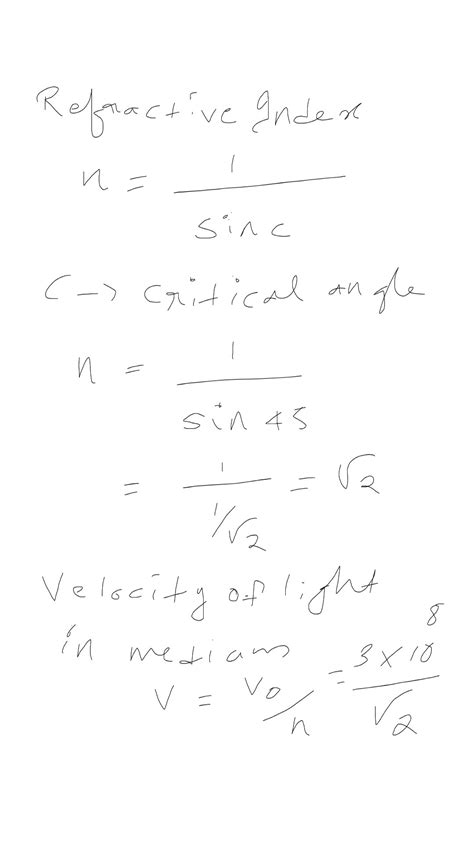 Refractive Index
n = 1 / sin c
C → critical angle
n = 1 / sin 45
= 1 / 1/√2 = √2
Velocity of light
in medium
V = V₀/n = 3 × 10⁸ / √2